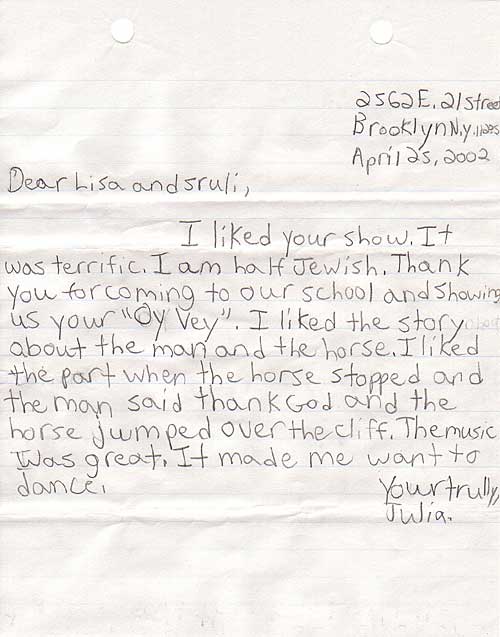 2562 E. 21 street
Brooklyn N.y.
April 25, 2002
Dear Lisa and sruli,
I liked your show. It
was terrific. I am half Jewish. Thank
you for coming to our school and showing
us your "Oy Vey". I liked the story
about the man and the horse. I liked
the part when the horse stopped and
the man said thank God and the
horse jumped over the cliff. The music
was great. It made me want to
dance.
Your trully,
Julia.